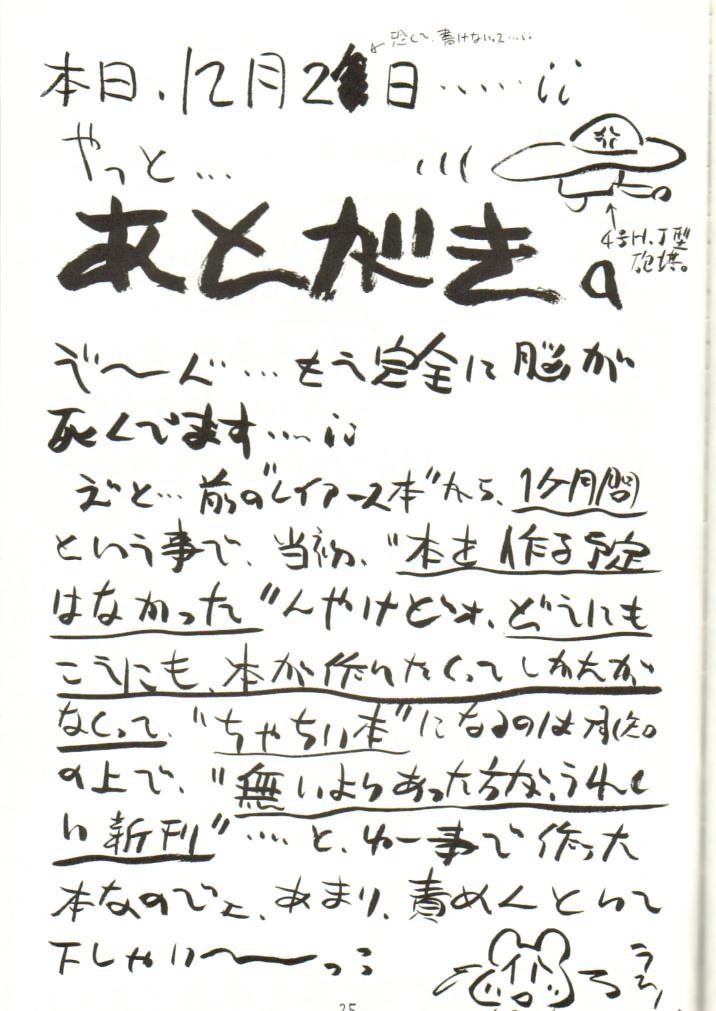 恐くて、書けないって…;;
本日、12月2 日……;;
やっと…
4号H、J型
砲塔。
あとがき。
う〜ん…もう完全に脳が
死んでます…;;
えと…前の"レイアース本"から、1ケ月間
という事で、当初、"本を作る予定
はなかった"んやけどォ、どうにも
こうにも、本が作りたくってしかたが
なくって、"ちゃちい本"になるのは承知。
の上で、"無いよりあった方が、うれし
い新刊"……と、ゆー事で作った
本なのでェ、あまり、責めんといて
下しゃい〜〜っ
25